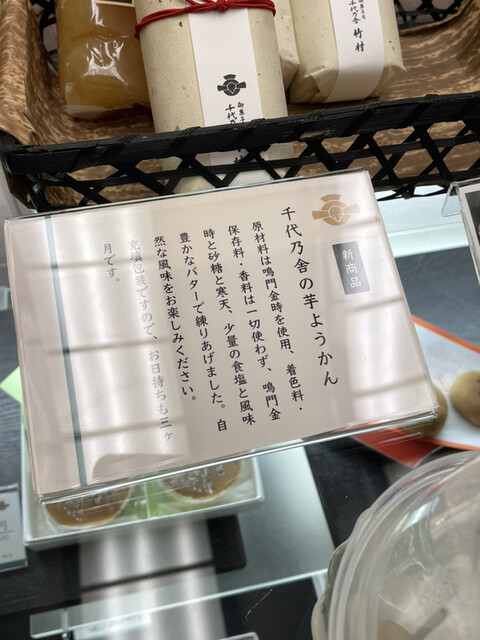 御菓子司
千代乃舎
竹村
御菓子司
千代乃舎 竹村
新商品
千代乃舎の芋ようかん
原材料は鳴門金時を使用、着色料・
保存料、香料は一切使わず、鳴門金
時と砂糖と寒天、少量の食塩と風味
豊かなバターで練りあげました。自
然な風味をお楽しみください。
充填包装ですので、お日持ちも三ヶ
月です。
円